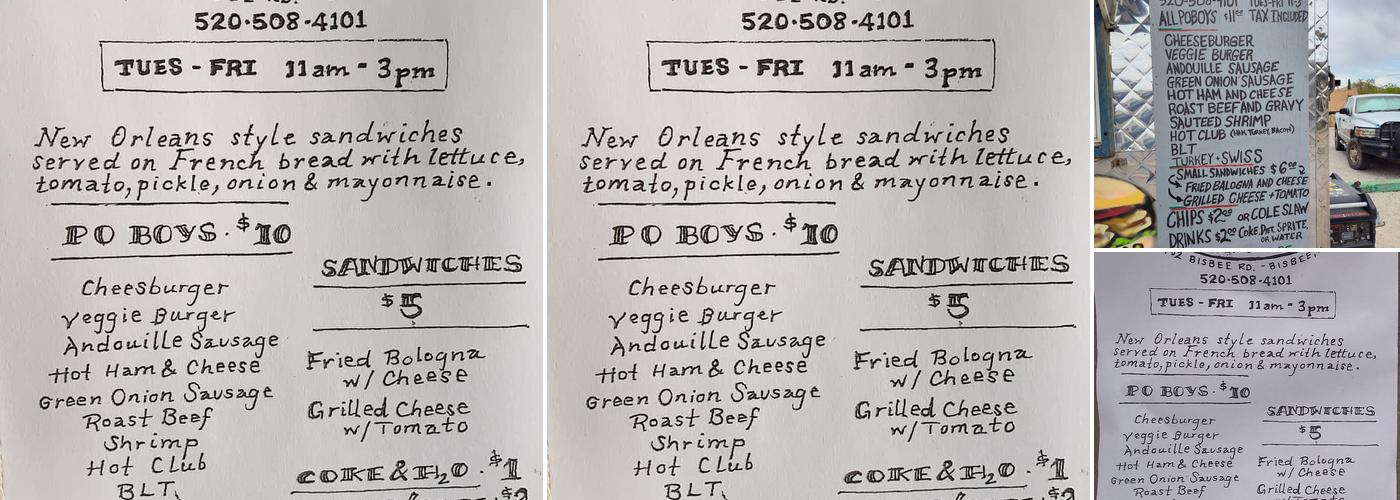 520·508·4101
TUES - FRI 11am - 3pm
New Orleans style sandwiches
served on French bread with lettuce,
tomato, pickle, onion & mayonnaise.
PO BOYS · $10
Cheesburger
Veggie Burger
Andouille Sausage
Hot Ham & Cheese
Green Onion Sausage
Roast Beef
Shrimp
Hot Club
BLT
SANDWICHES
$5
Fried Bologna
w/ Cheese
Grilled Cheese
w/Tomato
COKE & H2O · $1
520·508·4101
TUES - FRI 11am - 3pm
New Orleans style sandwiches
served on French bread with lettuce,
tomato, pickle, onion & mayonnaise.
PO BOYS · $10
Cheesburger
Veggie Burger
Andouille Sausage
Hot Ham & Cheese
Green Onion Sausage
Roast Beef
Shrimp
Hot Club
BLT
SANDWICHES
$5
Fried Bologna
w/ Cheese
Grilled Cheese
w/Tomato
COKE & H2O · $1
520-508-4101 TUES-FRI 11-3
ALL POBOYS $1100 TAX INCLUDED
CHEESEBURGER
VEGGIE BURGER
ANDOUILLE SAUSAGE
GREEN ONION SAUSAGE
HOT HAM AND CHEESE
ROAST BEEF AND GRAVY
SAUTEED SHRIMP
HOT CLUB (HAM, TURKEY, BACON)
BLT
TURKEY + SWISS
SMALL SANDWICHES $600
FRIED BALOGNA AND CHEESE
GRILLED CHEESE + TOMATO
CHIPS $200 OR COLE SLAW
DRINKS $200 COKE, DIET, SPRITE,
OR WATER
BISBEE RD. - BISBEE,
520·508·4101
TUES - FRI 11am - 3pm
New Orleans style sandwiches
served on French bread with lettuce,
tomato, pickle, onion & mayonnaise.
PO BOYS · $10
Cheesburger
Veggie Burger
Andouille Sausage
Hot Ham & Cheese
Green Onion Sausage
Roast Beef
SANDWICHES
$5
Fried Bologna
w/ Cheese
Grilled Cheese